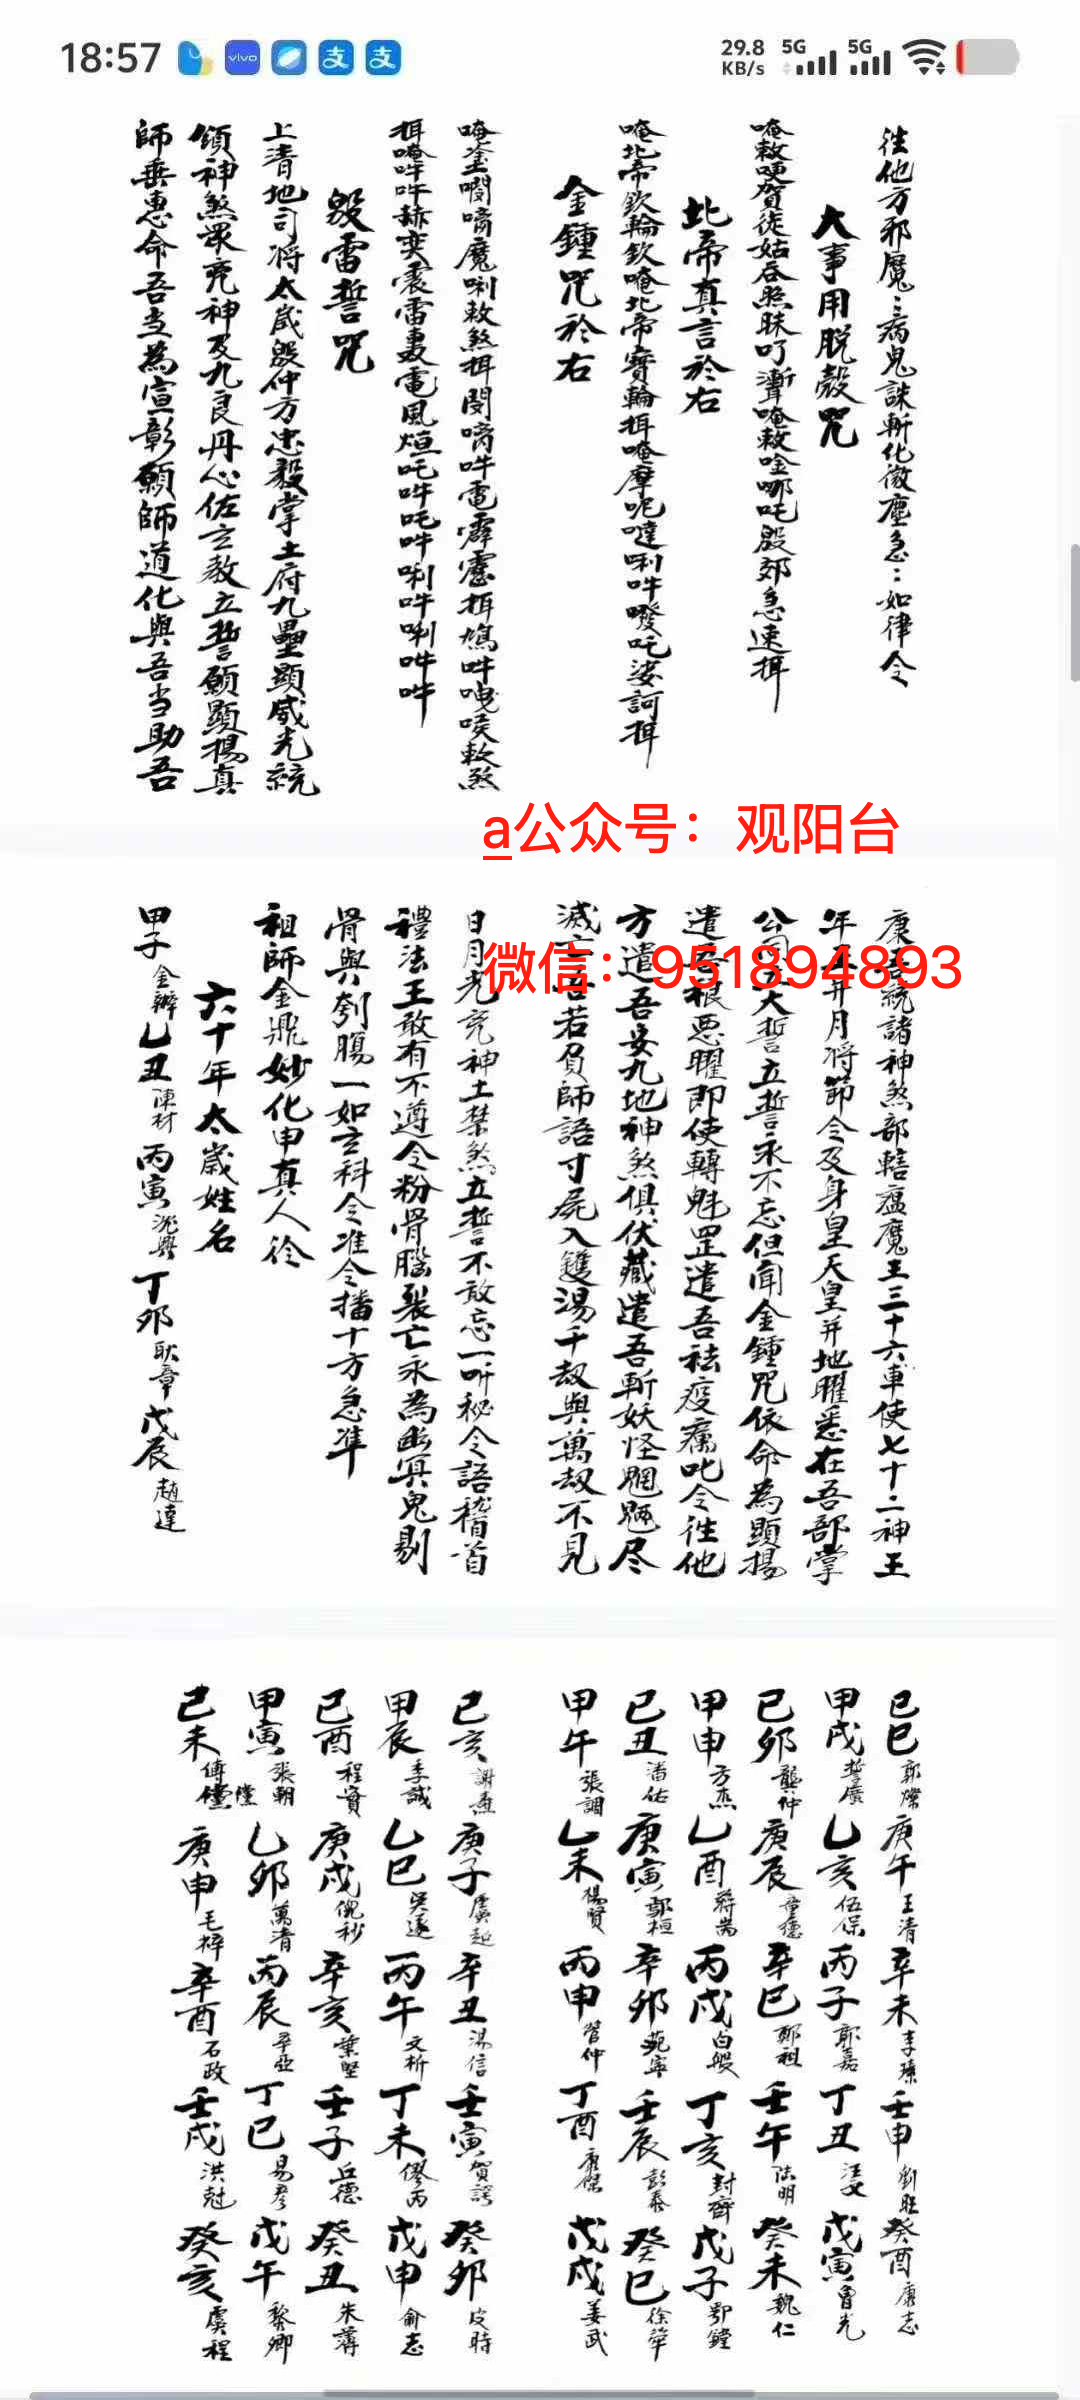 18:57
vivo
支
支
29.8
KB/s
5G
5G
往他方邪魔〻病鬼誅斬化微塵急〻如律令
大事用脱殼咒
唵敕哽賀徒姑吞照昧叮漸唵敕唫哪吒殷郊急速揖
北帝真言於右
唵北帝欽輪欽唵北帝寶輪揖唵摩呢噠唎吽㗶吒娑訶揖
金鍾咒於右
敕煞揖
揖唵吽吽赫奕震雷轟電風烜吒吽吒吽唎吽唎吽吽
殷雷誓咒
上清地司将太歲殷仲方忠毅掌土府九壘顯威光統
領神煞眾兇神及九良丹心佐玄教立誓願顯揚真
師垂惠命吾当為宣彰願師道化與吾当助吾
a公众号：观阳台
康吾統諸神煞部轄瘟魔王三十六車使七十二神王
年五并月将節令及身皇天皇并地曜悉在吾部掌
公同大誓立誓永不忘但闻金鍾咒依命為顯揚
遣吾根惡曜即使轉魁罡遣吾祛疫癘叱令往他
方遣吾安九地神煞俱伏藏遣吾斬妖怪魍魎尽
滅亡吾若負師語寸屍入雙湯千刼與萬刼不見
日月光兇神土禁煞立誓不敢忘一听秘令語稽首
禮法王敢有不遵令粉骨腦裂亡永為幽冥鬼剔
骨與刳腸一如玄科令准令播十方急準
祖師金鼎妙化申真人徐
微信：951894893
六十年太歲姓名
甲子 金辦 乙丑 陳材 丙寅 沈興 丁卯 耿章 戊辰 趙達
己巳 郭燦 庚午 王清 辛未 李素 壬申 劉旺 癸酉 康志
甲戌 誓廣 乙亥 伍保 丙子 郭嘉 丁丑 汪文 戊寅 曾光
己卯 龔仲 庚辰 童德 辛巳 鄭祖 壬午 陆明 癸未 魏仁
甲申 方杰 乙酉 蔣耑 丙戌 白般 丁亥 封齊 戊子 郢鏜
己丑 潘佑 庚寅 鄔桓 辛卯 范寧 壬辰 彭泰 癸巳 徐單
甲午 張調 乙未 楊賢 丙申 管仲 丁酉 康傑 戊戌 姜武
己亥 謝燾 庚子 虞起 辛丑 湯信 壬寅 賀諤 癸卯 皮時
甲辰 李誠 乙巳 吴遂 丙午 文析 丁未 僇丙 戊申 俞志
己酉 程寶 庚戌 倪秒 辛亥 葉堅 壬子 丘德 癸丑 朱薄
甲寅 張朝 乙卯 萬青 丙辰 辛亞 丁巳 易彥 戊午 黎卿
己未 傅儻 庚申 毛梓 辛酉 石政 壬戌 洪尅 癸亥 虞程